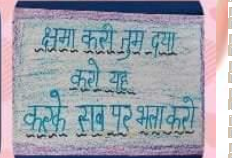 क्षमा करो तुम दया
करो यह
करके सब पर भला करो